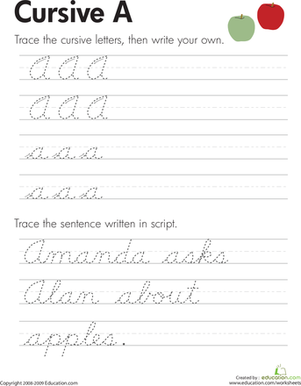 Cursive A
Trace the cursive letters, then write your own.
A A A
A A A
a a a
a a a
Trace the sentence written in script.
Amanda asks
Alan about
apples.
Created by :
education.com
Copyright 2008-2009 Education.com
www.education.com/worksheets